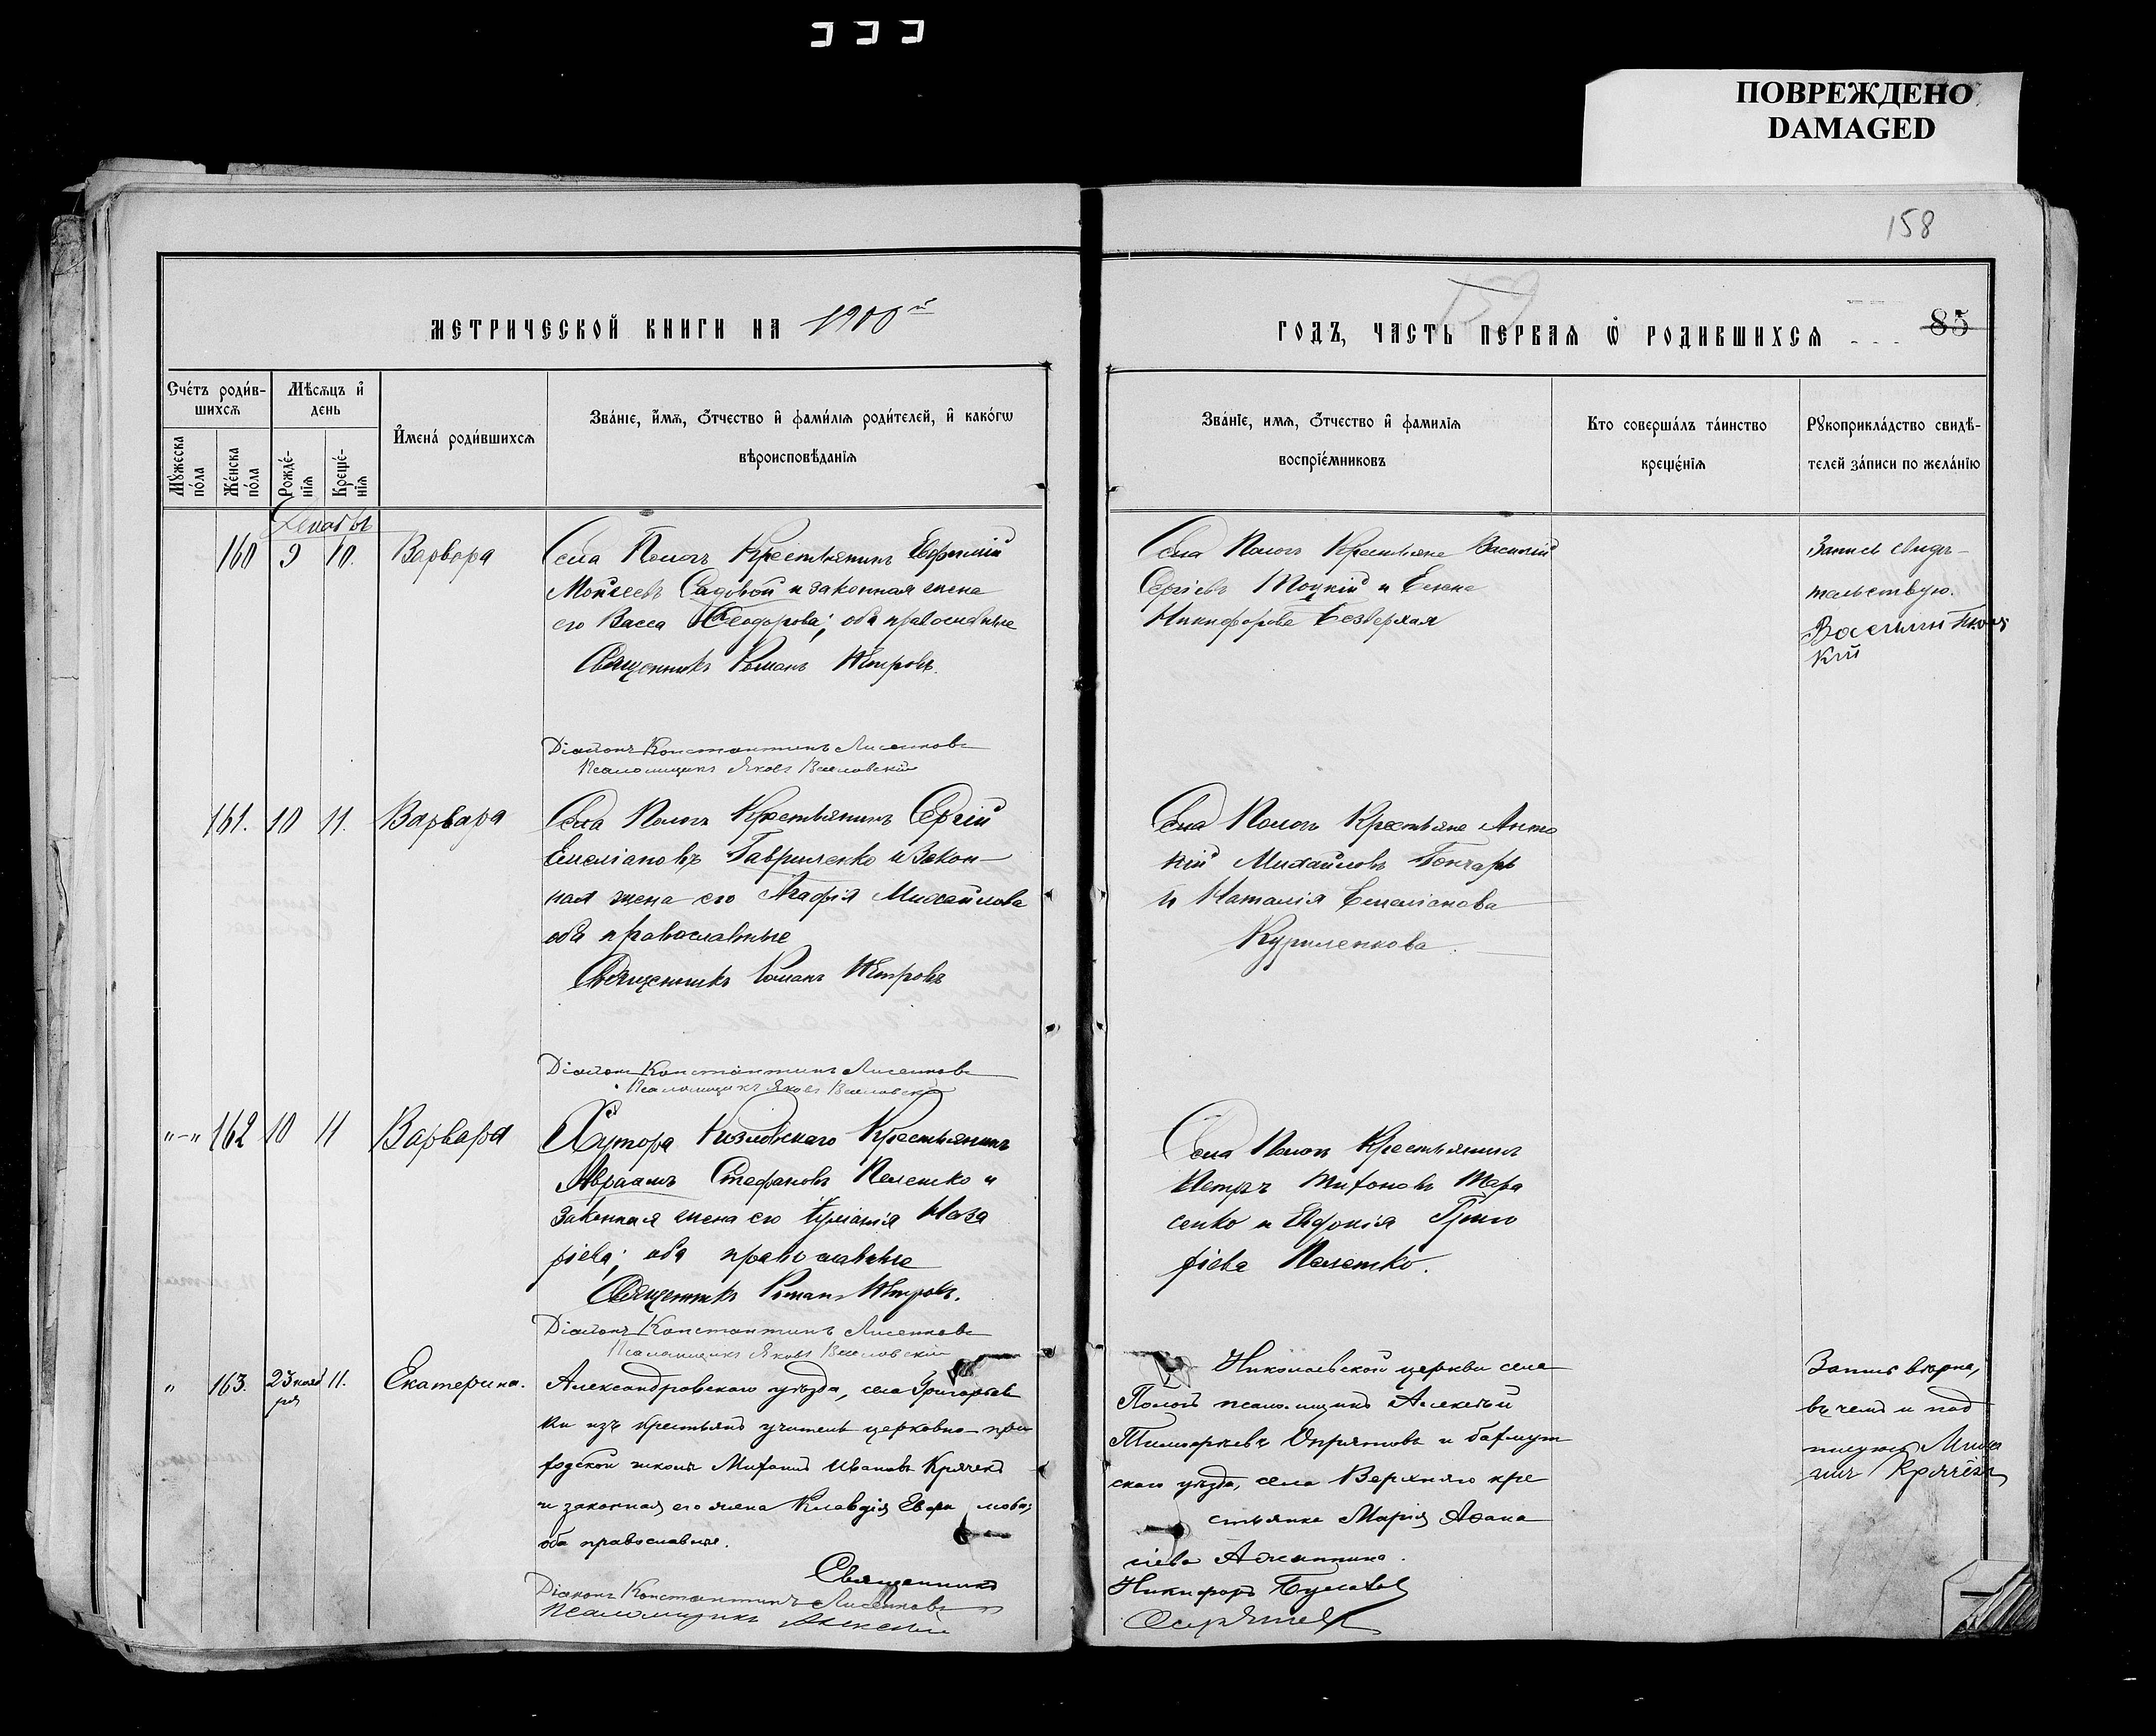 ПОВРЕЖДЕНО
DAMAGED
158
159
МЕТРИЧЕСКОЙ КНИГИ НА 1900й
ГОДЪ, ЧАСТЬ ПЕРВАЯ Ѡ РОДИВШИХСЯ
85
Счетъ родив-
шихся
Мѣсяцъ и
день
Имена родившихся
Званіе, имя, отчество и фамилія родителей, и какогѡ
вѣроисповѣданія
Мужеска
пола
Женска
пола
Рожде-
нія
Креще-
нія
Званіе, имя, отчество и фамилія
воспріемниковъ
Кто совершалъ таинство
крещенія
Рукоприкладство свидѣ-
телей записи по желанію
Декабрь
160 9 10. Варвара
Села Пологъ Крестьянинъ Евфимій
Моисеевъ Садовой и законная жена
его Васса Ѳеодорова; оба православные
Священникъ Романъ Петровъ.
Діаконъ Константинъ Лисенковъ
Псаломщикъ Яковъ
Села Пологъ Крестьяне Василій
Сергіевъ Тоцкій и Елена
Никифорова Безверхая
Запись свидѣ-
тельствую.
Василий
кий
161. 10 11. Варвара
Села Пологъ Крестьянинъ Сергій
Емеліановъ Гавриленко и закон-
ная жена его Агафія Михайлова
оба православные
Священникъ Романъ Петровъ
Діаконъ Константинъ Лисенковъ
Псаломщикъ Яковъ
Села Пологъ Крестьяне Анто
ній Михайловъ Гончаръ
и Наталія Емеліанова
Куриленкова.
"-" 162 10 11 Варвара
Хутора Козловскаго Крестьянинъ
Авраамъ Стефановъ Пелешко и
законная жена его Іуліанія Наза
ріева; оба православные
Священникъ Романъ Петровъ.
Діаконъ Константинъ Лисенковъ
Псаломщикъ Яковъ
Села Пологъ Крестьянинъ
Петръ Тихоновъ Тара
сенко и Евдокія Григо
ріева Пелешко.
" 163. 23 нояб
ря 11. Екатерина.
Александровскаго уѣзда, села Григорьев
ки изъ крестьянъ учитель церковно-при
ходской школы Митрофанъ Ивановъ
и законная его жена Клавдія
оба православные.
Священникъ
Діаконъ Константинъ Лисенковъ
Псаломщикъ Алексѣй
Николаевской церкви села
Пологъ псаломщикъ Алексѣй
Тимоѳеевъ Опрятовъ и Бахмут
скаго уѣзда, села Верхняго кре
стьянка Марія Аѳана
сіева
Никифоръ
Опрятовъ
Запись вѣрна,
въ чемъ и под
писуюсь